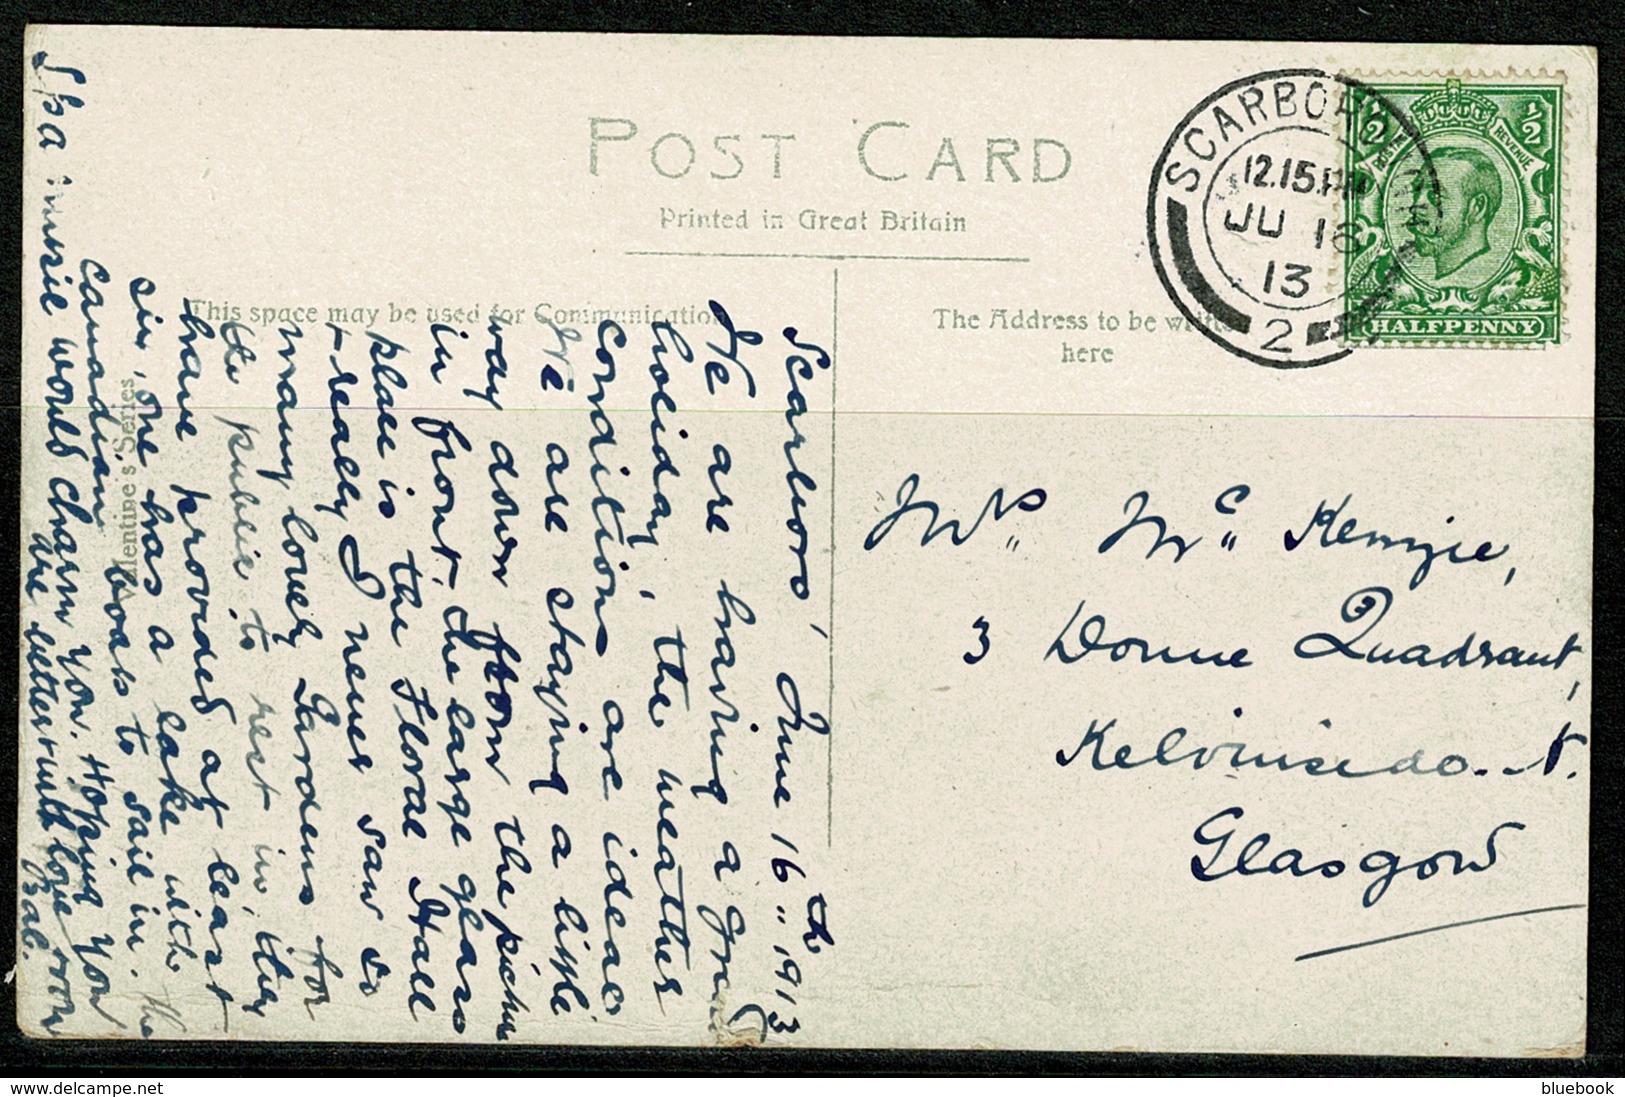 POST CARD
Printed in Great Britain
This space may be used for Communication
The Address to be written
here
Valentine's Series
SCARBORO
12.15 PM
JU 16
13
2
½ ½
POSTAGE REVENUE
HALFPENNY
Scarboro, June 16th 1913
We are having a grand
holiday, the weather
conditions are ideal
We are staying a little
way down from the picture
in front, the large glass
place is the Floral Hall
& really I never saw so
many lovely Gardens for
the public to rest in, they
have provided at least
six, one has a lake with
Canadian boats to sail in. The
Spa music would charm you. Hoping you
are better with love from
Bal.
Mrs Mc Kenzie,
3 Donne Quadrant,
Kelvinside N.
Glasgow
bluebook